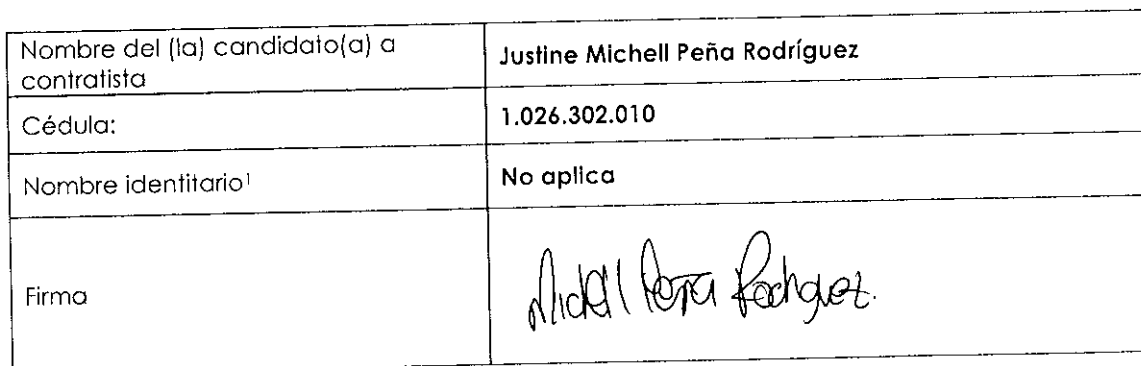 Nombre del (la) candidato(a) a
contratista
Justine Michell Peña Rodríguez
Cédula:
1.026.302.010
Nombre identitario¹
No aplica
Firma
Michell Peña Rodriguez.